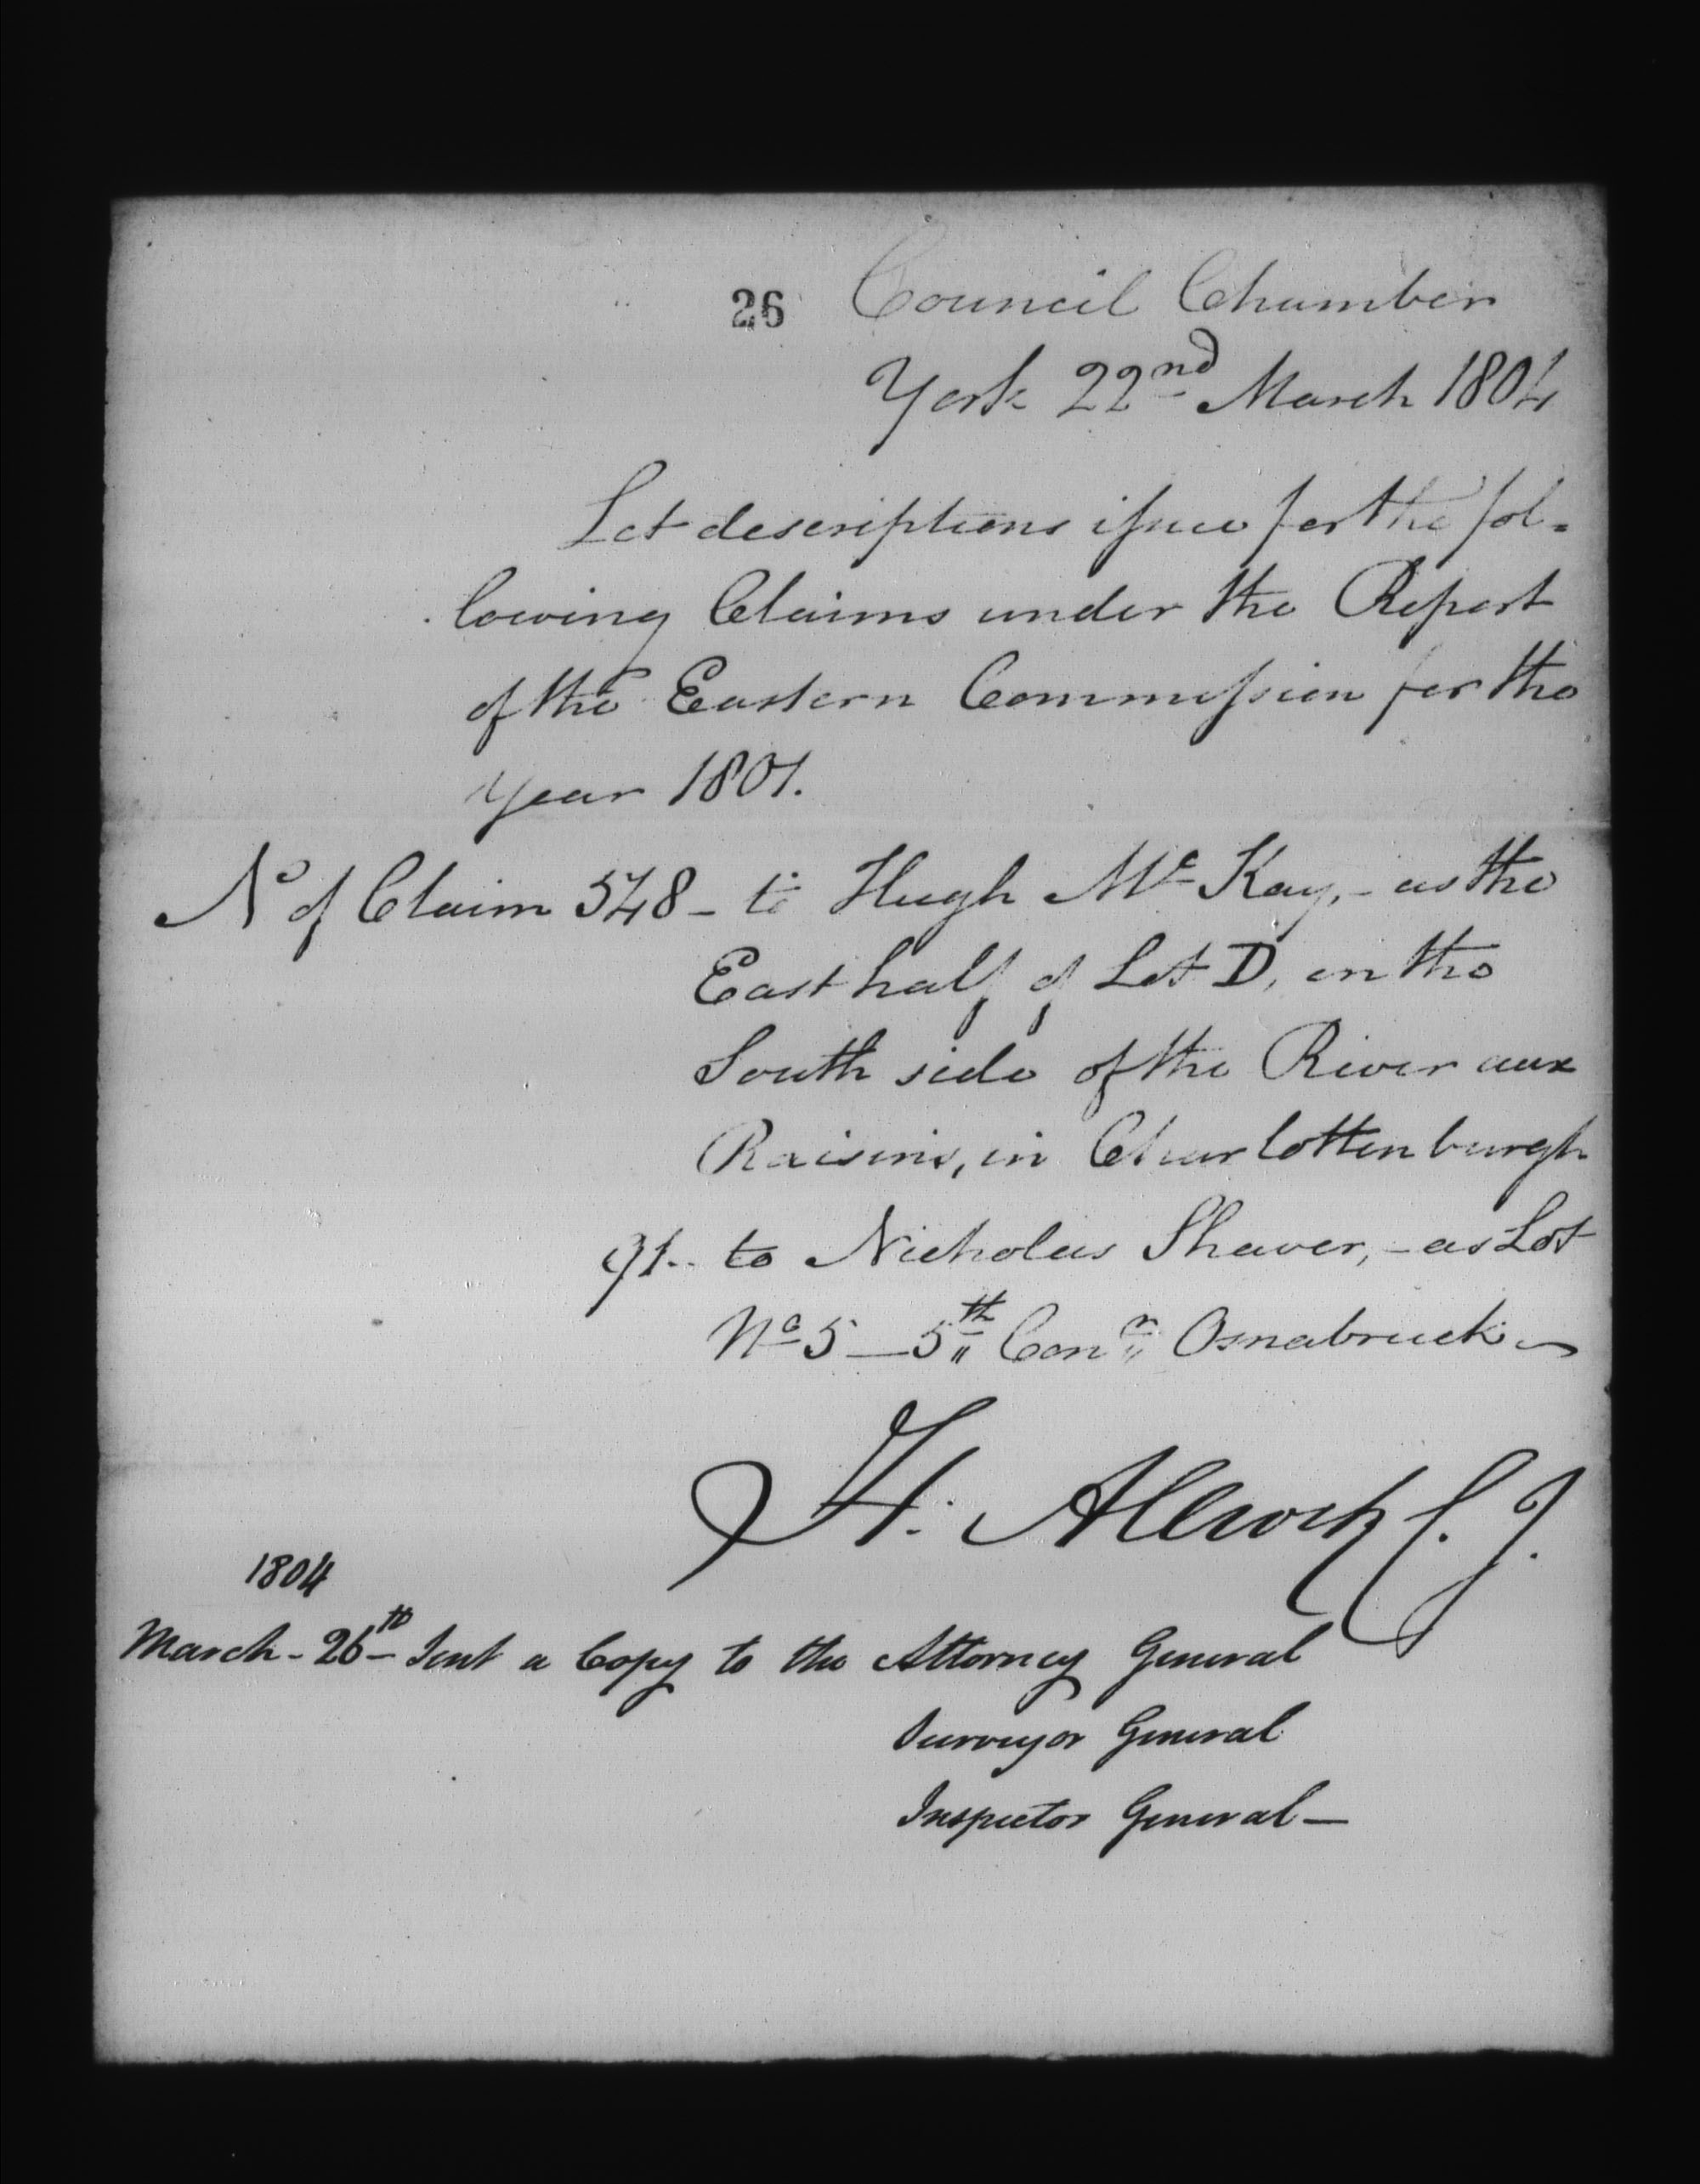 26 Council Chamber
York 22nd March 1804
Let descriptions issue for the fol=
lowing Claims under the Report
of the Eastern Commission for the
Year 1801.
No of Claim 548 - to Hugh Mc Kay, - as the
East half of Lot D, on the
South side of the River aux
Raisins, in Charlottenburgh
91.. to Nicholas Shaver, - as Lot
No 5 - 5th Conn Osnabruck -
H. Allcock C. J.
1804
March - 26th - Sent a Copy to the Attorney General
Surveyor General
Inspector General -